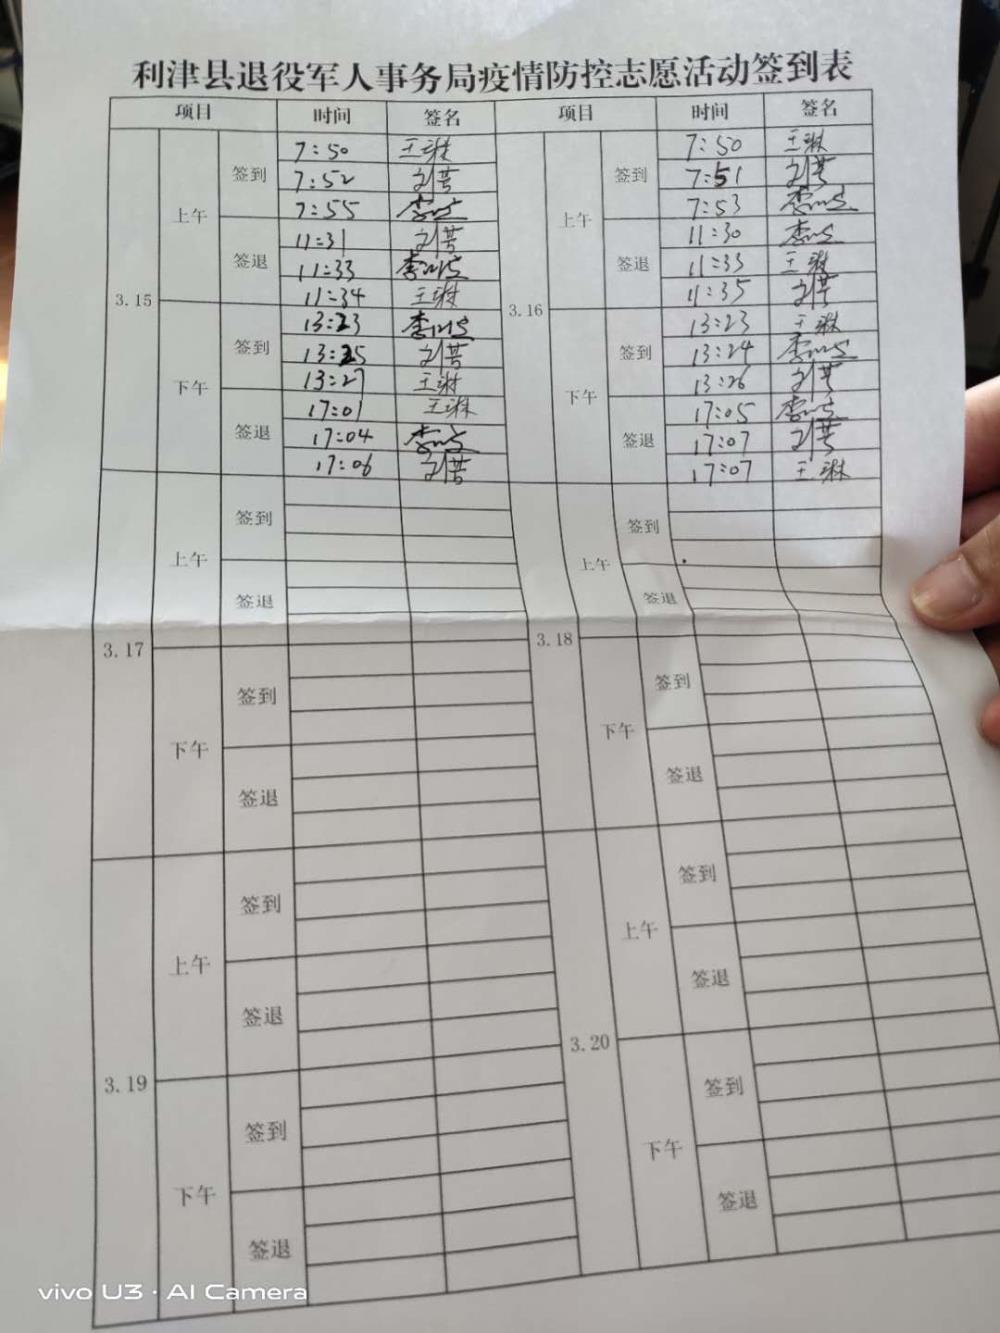 利津县退役军人事务局疫情防控志愿活动签到表
项目 时间 签名 项目 时间 签名
3.15
上午
签到
7:50 王琳
7:52 刘营
7:55
签退
11:31 刘营
11:33
11:34 王琳
下午
签到
13:23
13:25 刘营
13:27 王琳
签退
17:01 王琳
17:04
17:06 刘营
3.16
上午
签到
7:50 王琳
7:51 刘营
7:53
签退
11:30
11:33 王琳
11:35 刘营
下午
签到
13:23 王琳
13:24
13:26 刘营
签退
17:05
17:07 刘营
17:07 王琳
3.17
上午
签到
签退
下午
签到
签退
3.18
上午
签到
签退
下午
签到
签退
3.19
上午
签到
签退
下午
签到
签退
3.20
上午
签到
签退
下午
签到
签退
vivo U3 · AI Camera